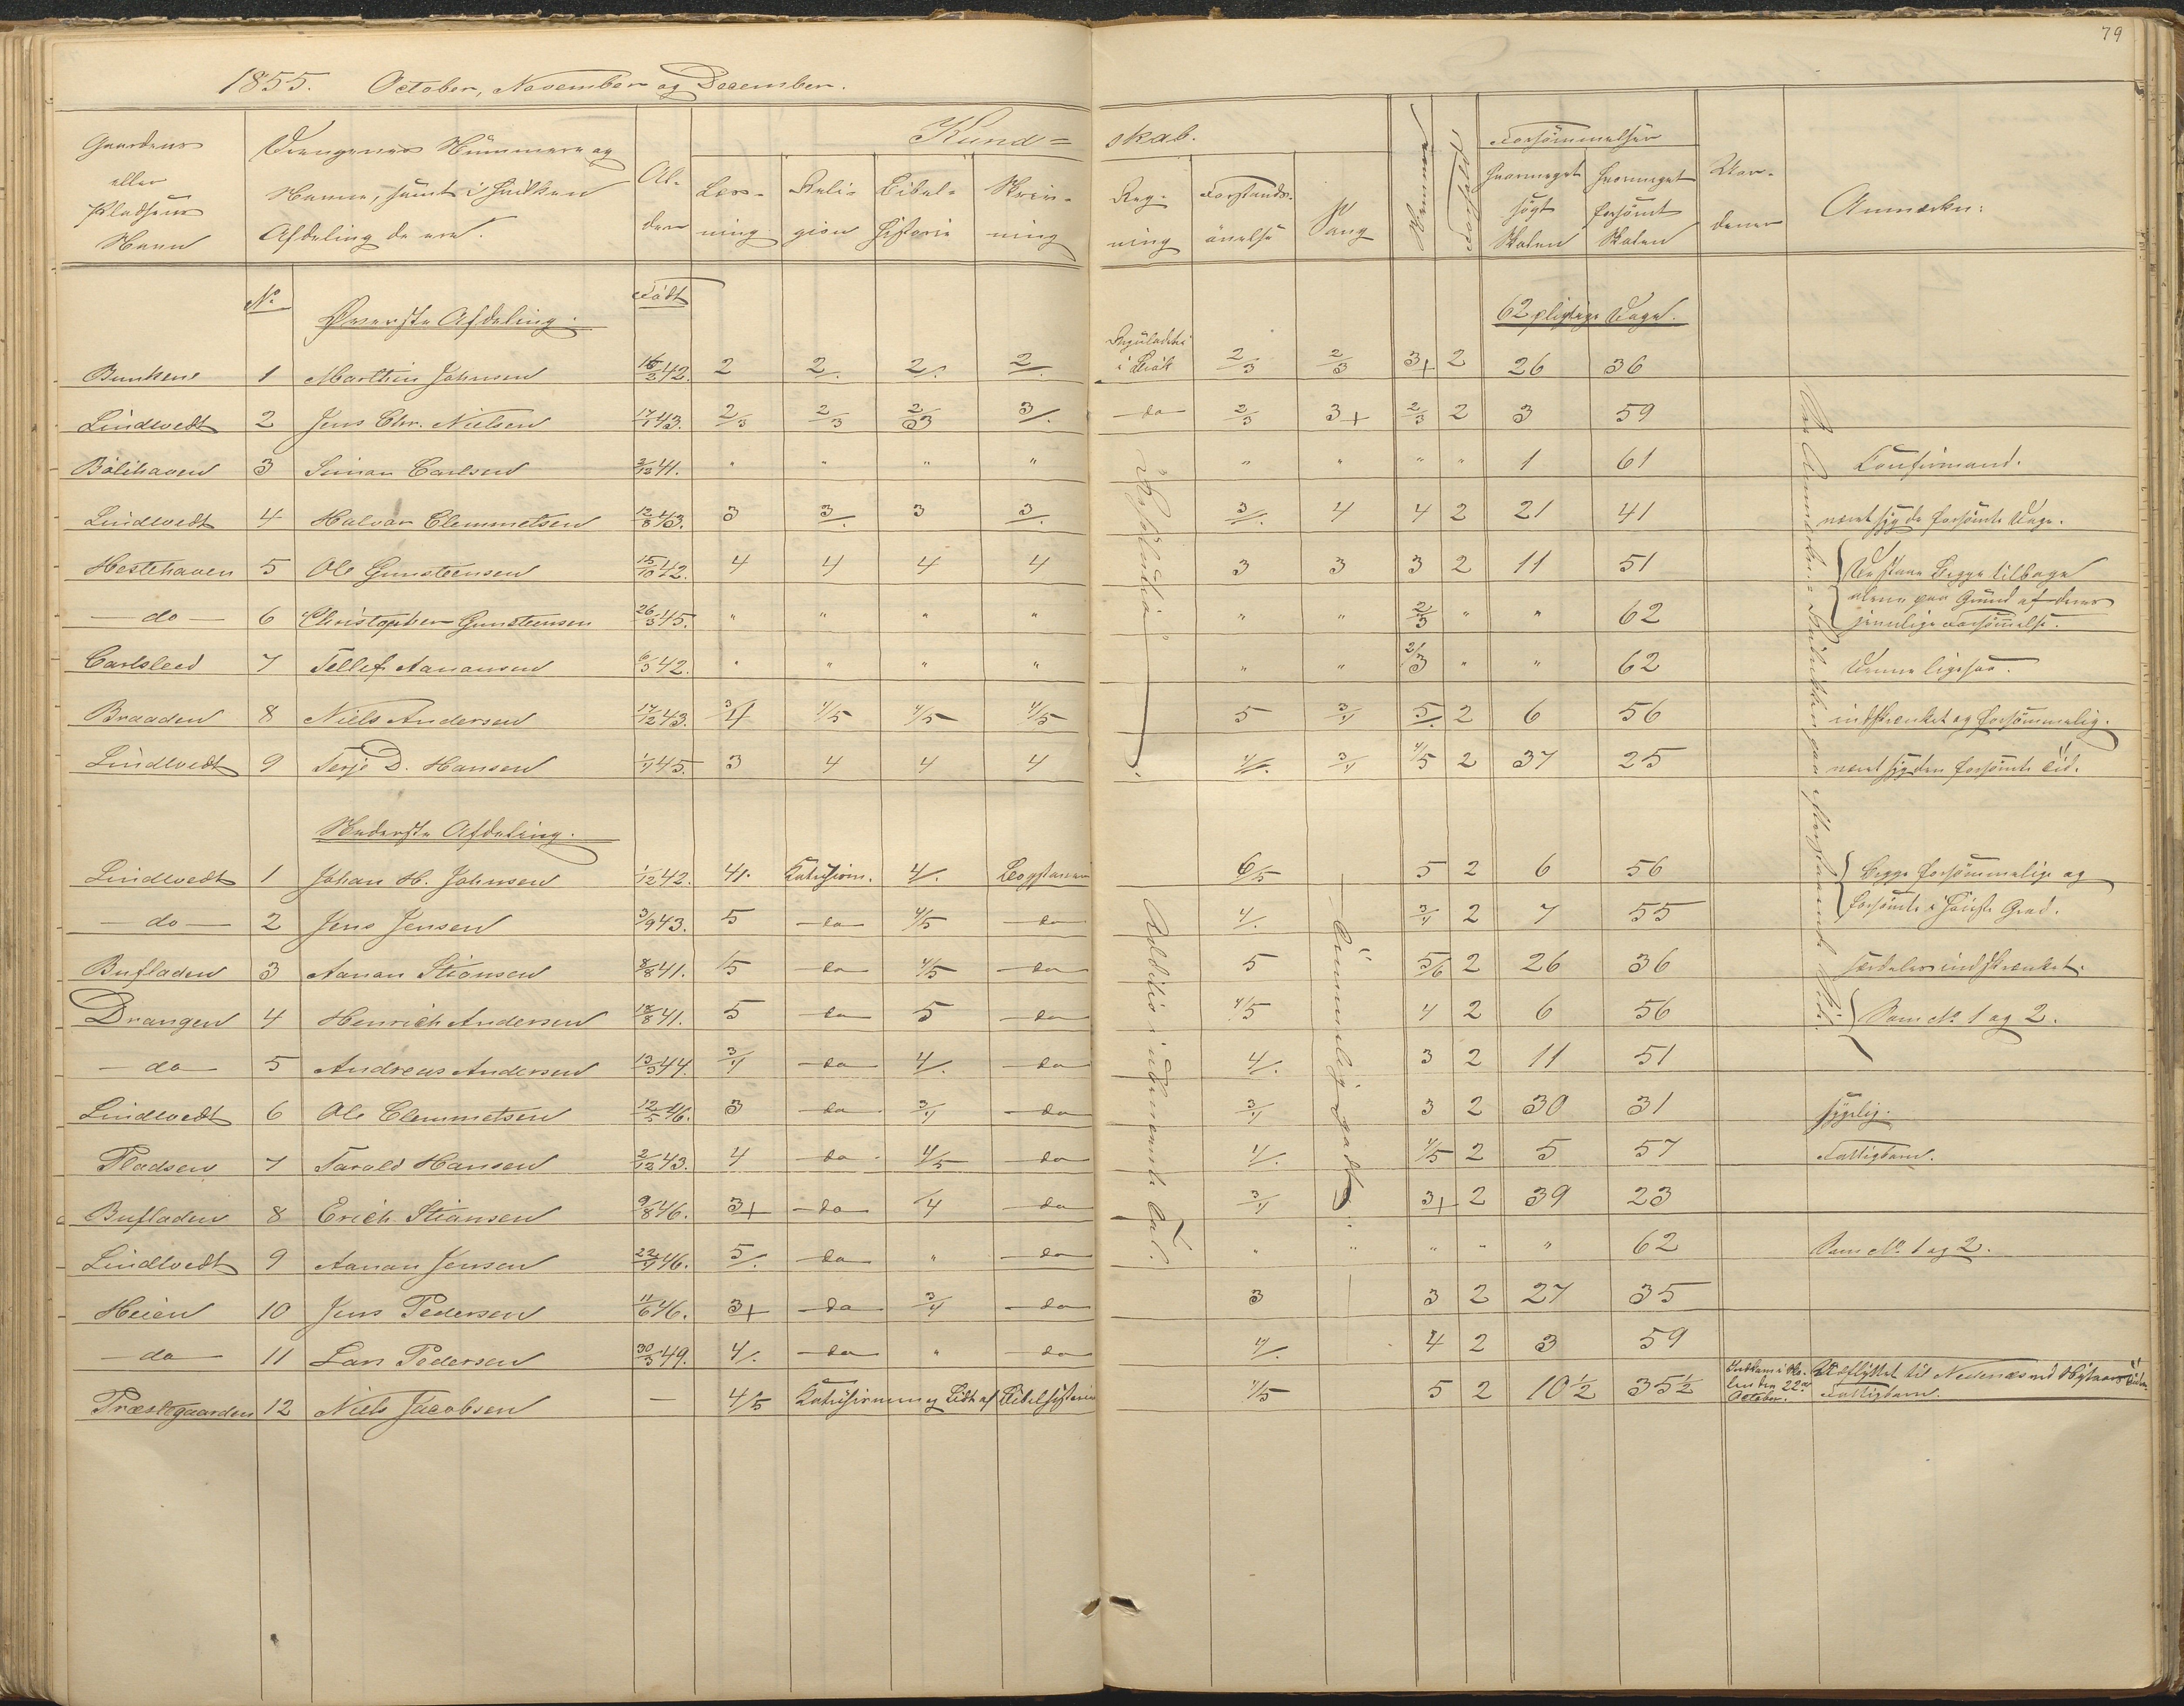 79
1855. October, November og December.
Gaardens eller Pladsens Navn | Drengenes Nummere og Navne, samt i hvilken Afdeling de ere. | Alder | Kundskab. | Forsömmelser | Anmærkn:
Læsning | Religion | Bibelhistorie | Skrivning | Regning | Forstandsövelse | Sang | Evner | Forhold | hvormeget sögt Skolen | hvormeget forsömt Skolen
No | Øverste Afdeling. | Födt | 62 pligtige Dage.
Bunkene 1 Marthin Johnsen 16/2 42. 2 2/. 2/. 2/. Reguladetri i Brök 2/3 2/3 3+ 2 26 36
Lindtvedt 2 Jens Chr. Nielsen 17/1 43. 2/3 2/3 2/3 3/. do 2/3 3+ 2/3 2 3 59
Bölihaven 3 Simon Carlsen 2/12 41. " " " " " " " " 1 61 Confirmand.
Lindtvedt 4 Halvor Clemmetsen 12/8 43. 3 3/. 3 3/. 3/. 4 4 2 21 41 været syg de forsömte Dage.
Hestehaven 5 Ole Gunsteensen 15/10 42. 4 4 4 4 3 3 3 2 11 51 De staae begge tilbage
do 6 Christopher Gunsteensen 26/3 45. " " " " " " 2/3 " " 62 alene paa Grund af deres jevnlige Forsömmelse.
Carlsleed 7 Tellef Aanonsen 6/3 42. " " " " " " 2/3 " " 62 Denne ligesaa.
Braaden 8 Niels Andersen 17/12 43. 3/4 4/5 4/5 4/5 5 3/4 5/. 2 6 56 indskrænket og forsömmelig.
Lindtvedt 9 Terje D. Hansen 1/4 45. 3 4 4 4 4/. 3/4 4/5 2 37 25 været syg den forsömte Tid.
Nederste Afdeling.
Lindtvedt 1 Johan H. Johnsen 1/12 42. 4/. Katechism. 4/. Bogstaver 6/5 5 2 6 56 Begge forsömmelige og
do 2 Jens Jensen 3/9 43. 5 do 4/5 do 4/. 3/4 2 7 55 forsömte i höieste Grad.
Bufladen 3 Aanon Stiansen 8/8 41. 5 do 4/5 do 5 5/6 2 26 36 særdeles indskrænket.
Drangen 4 Henrich Andersen 18/8 41. 5 do 5 do 4/5 4 2 6 56 Som No 1 og 2.
do 5 Andreas Andersen 13/3 44. 3/4 do 4/. do 4/. 3 2 11 51
Lindtvedt 6 Ole Clemmetsen 12/5 46. 3 do 3/4 do 3/4 3 2 30 31 sygelig.
Pladsen 7 Tarald Hansen 2/12 43. 4 do 4/5 do 4/. 4/5 2 5 57 Fattigbarn.
Bufladen 8 Erich Stiansen 9/8 46. 3+ do 4 do 3/4 3+ 2 39 23
Lindtvedt 9 Aanon Jensen 22/4 46. 5/. do " do " " " " " 62 Som No. 1 og 2.
Heien 10 Jens Pedersen 11/6 46. 3+ do 3/4 do 3 3 2 27 35
do 11 Lars Pedersen 30/3 49. 4/. do " do 4/. 4 2 3 59
Præstegaarden 12 Niels Jacobsen — 4/5 Katechismen og Lidt af Bibelhistorien 4/5 5 2 10½ 35½ Indkom i Skolen den 22de October. Udflyttet til Nedenæs ved Nytaarstider. Fattigbarn.
Addition i ubenævnte Tal.